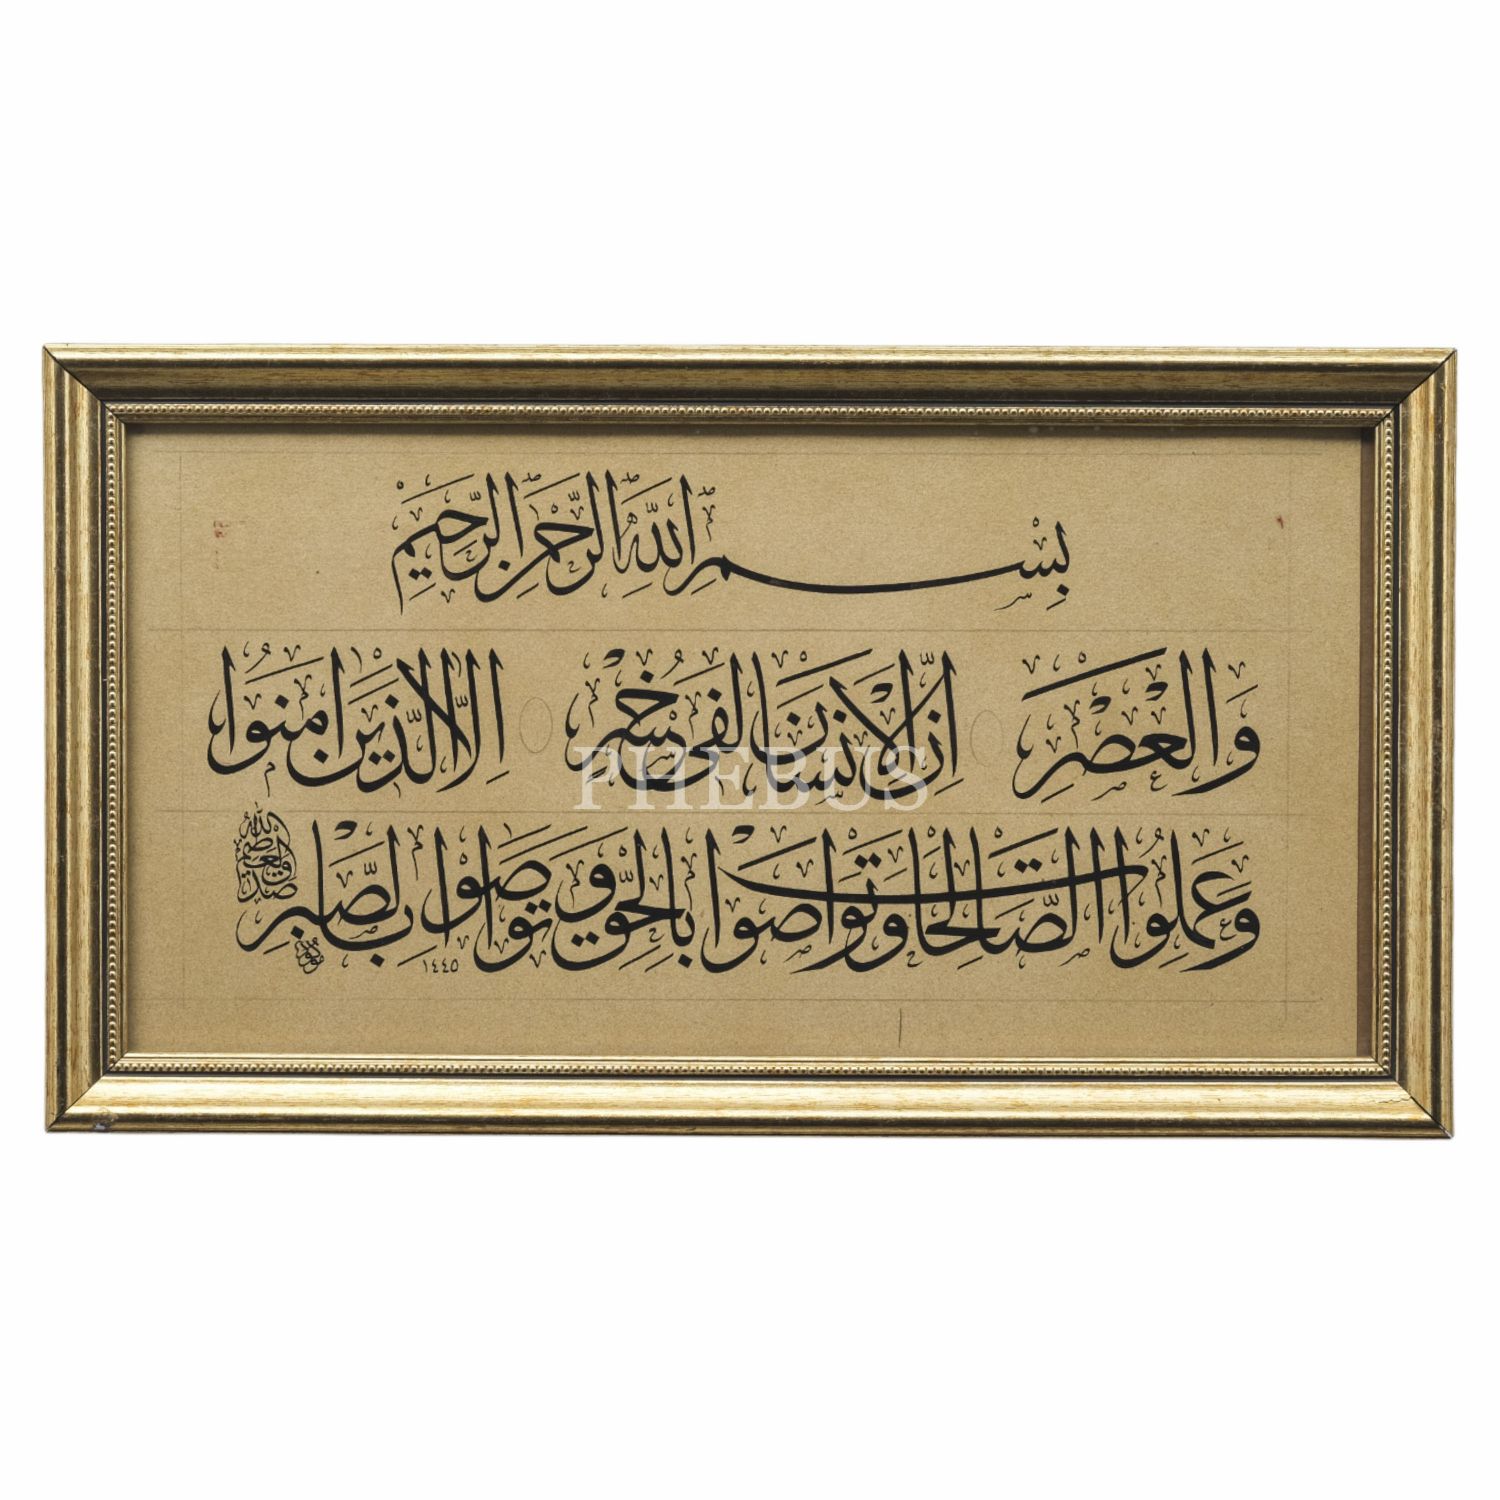 بِسْمِ اللَّهِ الرَّحْمَنِ الرَّحِيمِ
وَالْعَصْرِ إِنَّ الْإِنْسَانَ لَفِى خُسْرٍ إِلَّا الَّذِينَ اٰمَنُوا
وَعَمِلُوا الصَّالِحَاتِ وَتَوَاصَوْا بِالْحَقِّ وَتَوَاصَوْا بِالصَّبْرِ
صدق الله العظيم
١٤٤٥
PHEBUS